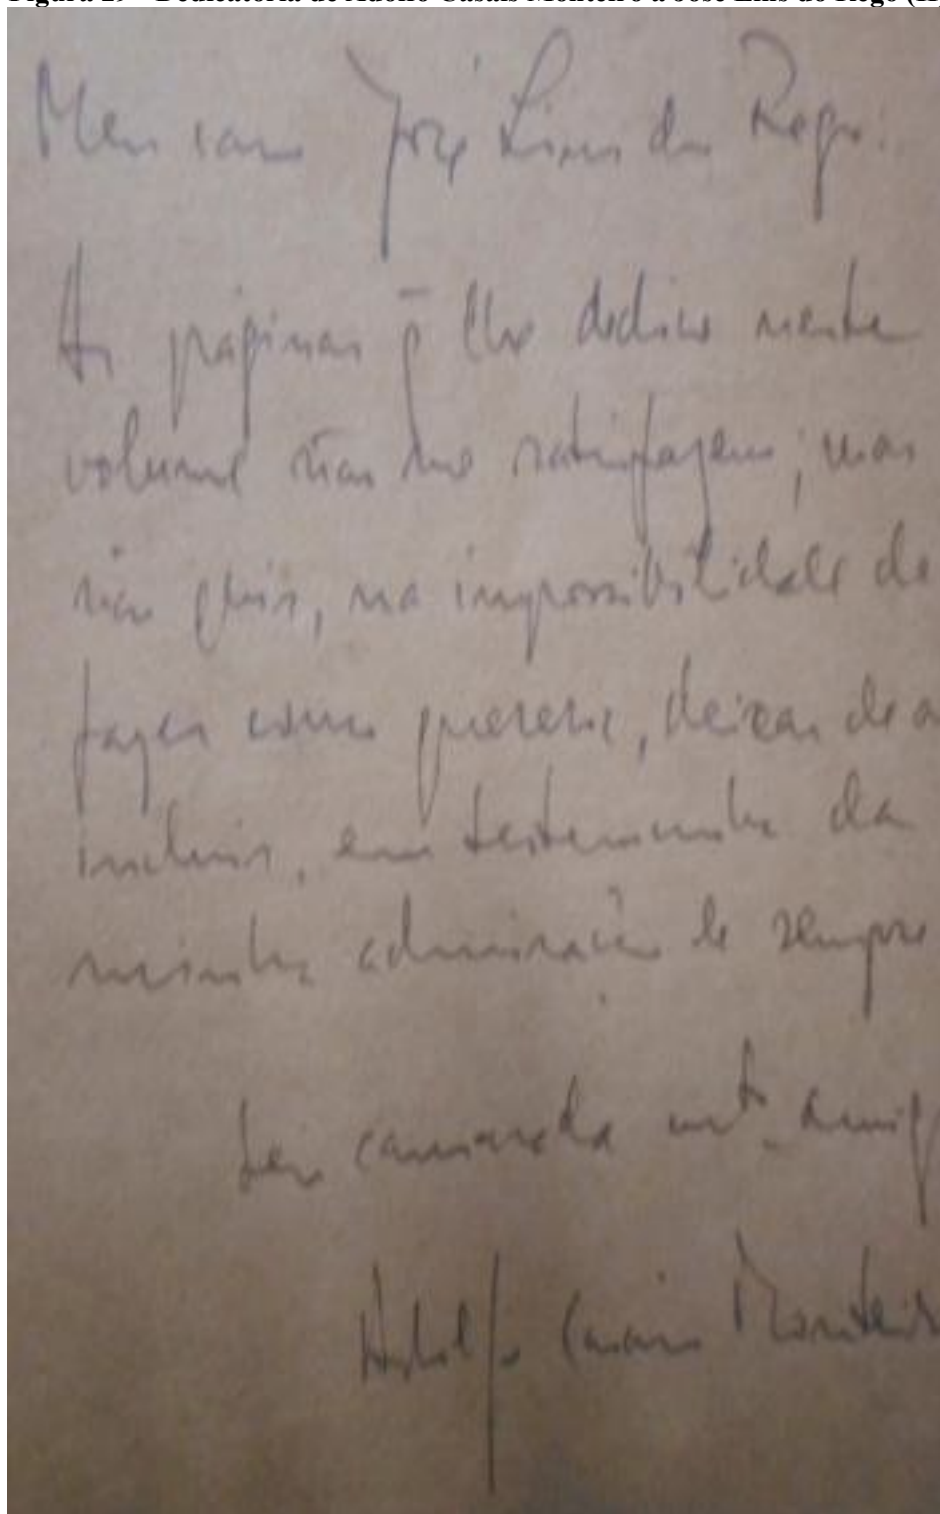 Figura 29 - Dedicatória de Adolfo Casais Monteiro a José Lins do Rego (I
Meu caro José Lins do Rego:
As páginas q̄ lhe dedico neste
volume não me satisfazem; mas
não quis, na impossibilidade de
fazer como quereria, deixar de as
incluir, em testemunho da
minha admiração de sempre
Seu camarada mt.º amig
Adolfo Casais Monteiro